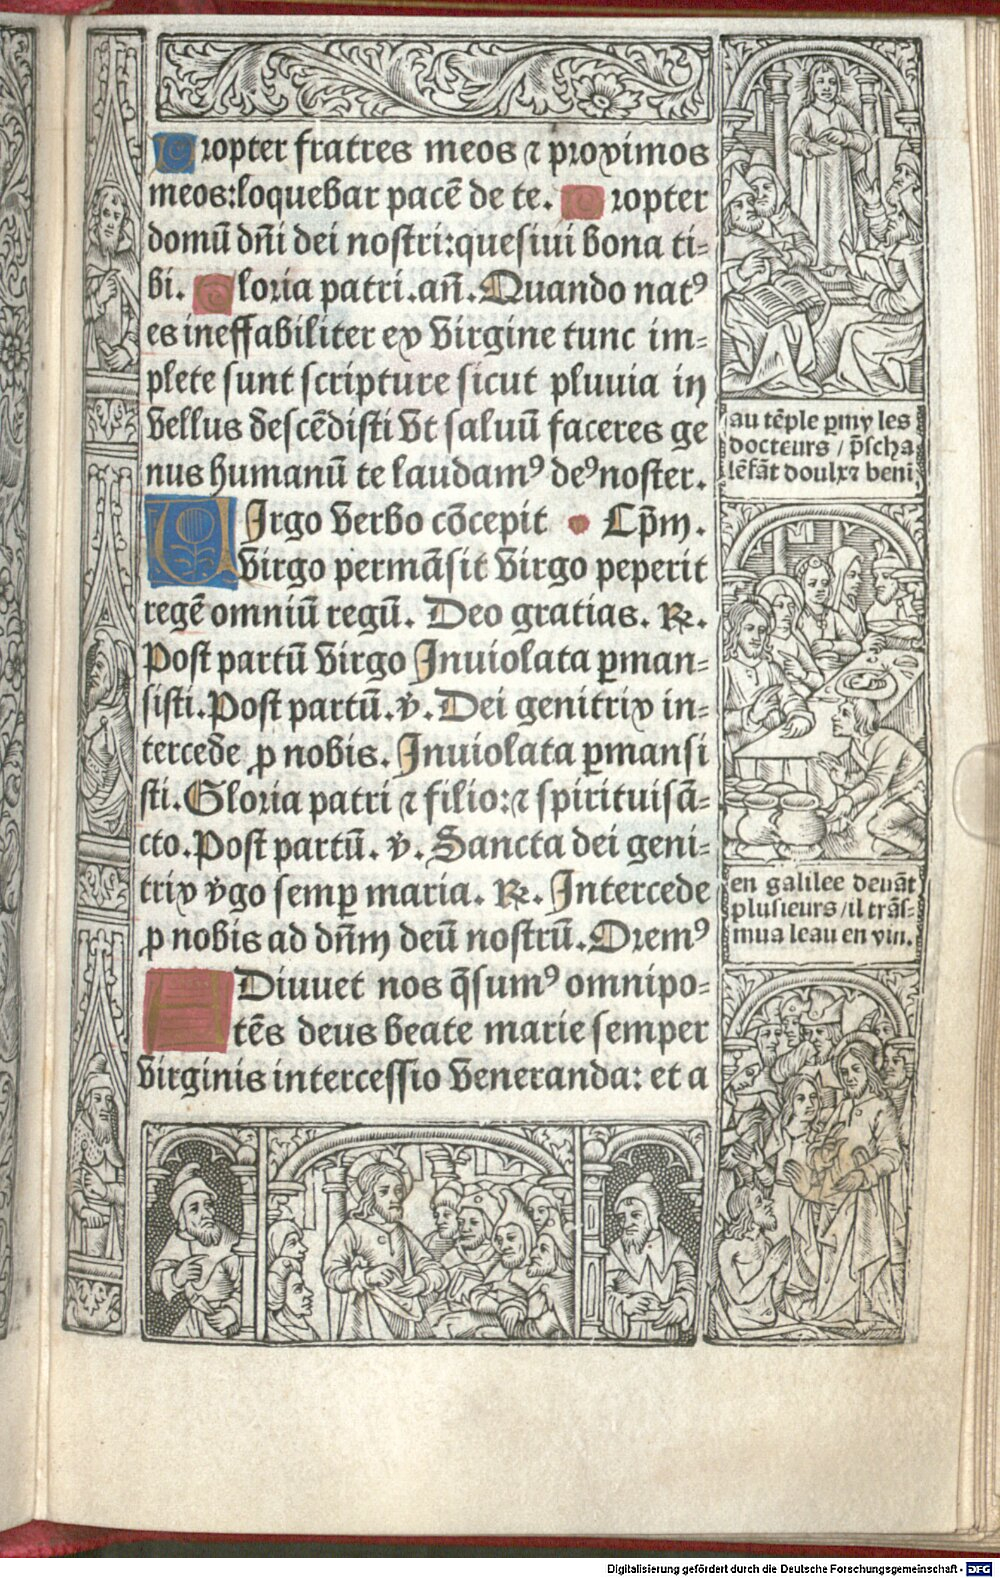 Propter fratres meos ⁊ proximos
meos:loquebar pacē de te. Propter
domū dn̄i dei nostri:quesiui bona ti=
bi. Gloria patri.an̄.Quando natꝰ
es ineffabiliter ex virgine tunc im=
plete sunt scripture sicut pluuia in
vellus descēdisti vt saluū faceres ge
nus humanū te laudamꝰ deꝰ noster.
VIrgo verbo cōcepit Cp̄m.
virgo permāsit virgo peperit
regē omniū regū. Deo gratias. ℟.
Post partū virgo Inuiolata ꝑman=
sisti.Post partū. ℣. Dei genitrix in=
tercede ꝓ nobis. Inuiolata ꝑmansi
sti.Gloria patri ⁊ filio:⁊ spirituisā=
cto.Post partū. ℣. Sancta dei geni=
trix v̾go semꝑ maria. ℟. Intercede
ꝓ nobis ad dn̄m deū nostrū.Oremꝰ
ADiuuet nos q̄sumꝰ omnipo=
tēs deus beate marie semper
virginis intercessio veneranda: et a
au tēple ꝑmy les
docteurs / p̄scha
lēfāt doulx⁊ beni
en galilee deuāt
plusieurs /il trās=
mua leau en vin.
Digitalisierung gefördert durch die Deutsche Forschungsgemeinschaft - DFG